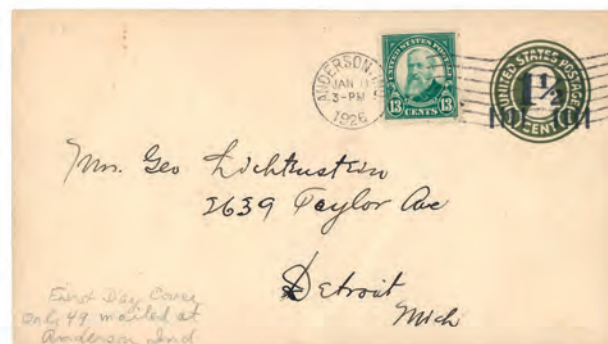 ANDERSON, IND.
JAN 11
3-PM
1926
UNITED STATES POSTAGE
13 CENTS 13
UNITED STATES POSTAGE
1½
CENT
Mr. Geo Lichtenstein
2639 Taylor Ave
Detroit
Mich
First Day Cover
Only 49 mailed at
Anderson Ind